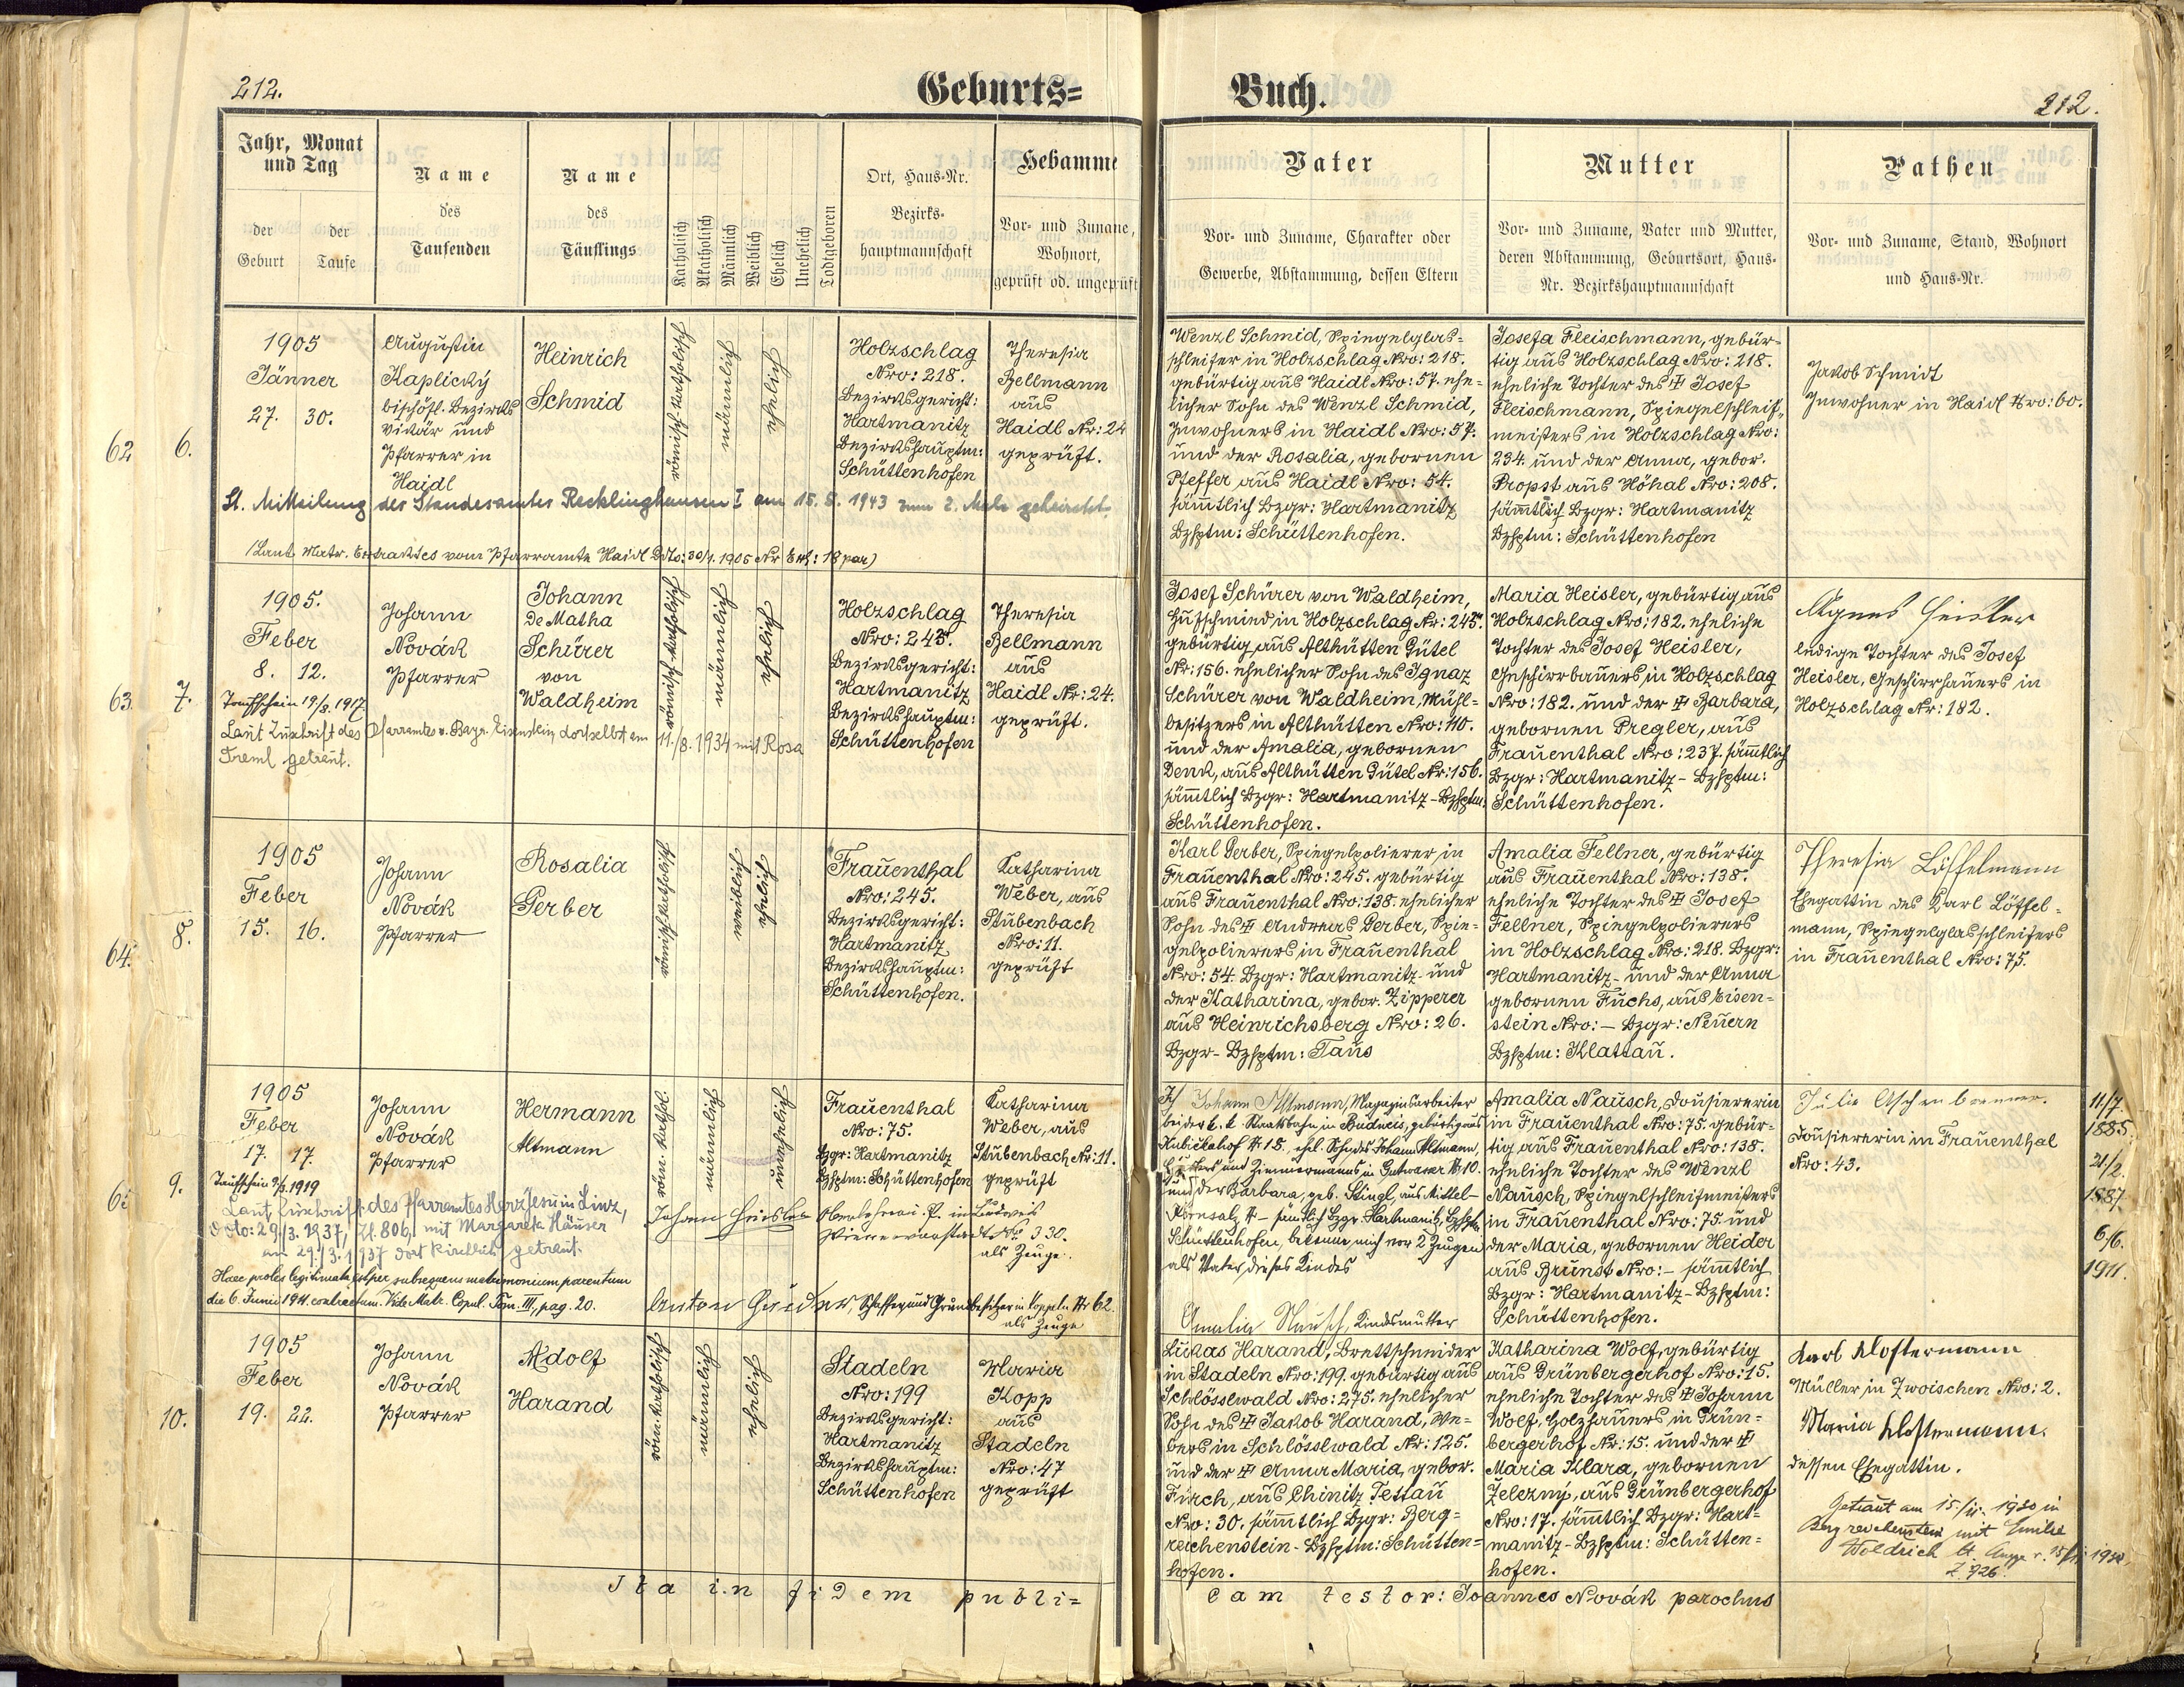 212.
Geburts=
Jahr, Monat
und Tag
der
Geburt
der
Taufe
Name
des
Taufenden
Name
des
Täuflings
Katholisch
Akatholisch
Männlich
Weiblich
Ehelich
Unehelich
Todtgeboren
Ort, Haus-Nr.
Bezirks-
hauptmannschaft
Hebamme
Vor- und Zuname,
Wohnort,
geprüft od. ungeprüft
62
6.
1905
Jänner
27. 30.
Augustin
Kaplický
bischöfl. Bezirks
Vikär und
Pfarrer in
Haidl
Heinrich
Schmid
römisch-katholisch
männlich
ehelich
Holzschlag
Nro: 218.
Bezirksgericht:
Hartmanitz
Bezirkshauptm:
Schüttenhofen
Theresia
Bellmann
aus
Haidl Nr: 24
geprüft.
Lt. Mitteilung des Standesamtes Recklinghausen I am 15. 5. 1943 zum 2. Male geheiratet.
(Laut Matr. Extraktes vom Pfarramte Haidl Ddto: 30/1. 1905 Nr Exh: 18 par)
63.
7.
1905.
Feber
8. 12.
Taufschein 19/8. 1917.
Johann
Novák
Pfarrer
Johann
De Matha
Schürer
von
Waldheim
römisch-katholisch
männlich
ehelich
Holzschlag
Nro: 245.
Bezirksgericht:
Hartmanitz
Bezirkshauptm:
Schüttenhofen
Theresia
Bellmann
aus
Haidl Nr: 24.
geprüft.
Laut Zuschrift des Pfarramtes v. Bayr. Eisenstein, dortselbst am 11./8. 1934 mit Rosa
Treml getraut.
64.
8.
1905
Feber
15. 16.
Johann
Novák
Pfarrer
Rosalia
Gerber
römisch-katholisch
weiblich
ehelich
Frauenthal
Nro: 245.
Bezirksgericht:
Hartmanitz
Bezirkshauptm:
Schüttenhofen.
Katharina
Weber, aus
Stubenbach
Nro: 11.
geprüft
9.
1905
Feber
17. 17.
Johann
Novák
Pfarrer
Hermann
Altmann
röm. kathol.
männlich
unehelich
Frauenthal
Nro: 75.
Bzgr: Hartmanitz
Bzhptm: Schüttenhofen
Katharina
Weber, aus
Stubenbach Nr: 11.
geprüft
Laut Zuschrift des Pfarramtes Herz Jesu in Linz,
ddto: 29./3. 1937, Zl. 806, mit Margareta Häuser
am 29./3. 1937 dort kirchlich getraut.
Johann
als Zeuge.
Haec proles legitimata est per subsequens matrimonium parentum
die 6. Junii 1911 contractum. Vide Matr. Copul. Tom. III, pag. 20.
Anton
als Zeuge
10.
1905
Feber
19. 22.
Johann
Novák
Pfarrer
Adolf
Harand
röm. katholisch
männlich
ehelich
Stadeln
Nro: 199
Bezirksgericht:
Hartmanitz
Bezirkshauptm:
Schüttenhofen
Maria
Kopp
aus
Stadeln
Nro: 47
geprüft
Ita in fidem publi=
Buch.
212.
Vater
Vor- und Zuname, Charakter oder
Gewerbe, Abstammung, dessen Eltern
Mutter
Vor- und Zuname, Vater und Mutter,
deren Abstammung, Geburtsort, Haus-
Nr. Bezirkshauptmannschaft
Pathen
Vor- und Zuname, Stand, Wohnort
und Haus-Nr.
Wenzl Schmid, Spiegelglas=
schleifer in Holzschlag Nro: 218.
gebürtig aus Haidl Nro: 57. ehe=
licher Sohn des Wenzl Schmid,
Inwohners in Haidl Nro: 57.
und der Rosalia, gebornen
Pfeffer aus Haidl Nro: 54.
sämmtlich Bzgr: Hartmanitz
Bzhptm: Schüttenhofen.
Josefa Fleischmann, gebür=
tig aus Holzschlag Nro: 218.
eheliche Tochter des † Josef
Fleischmann, Spiegelschleif=
meisters in Holzschlag Nro:
234. und der Anna, gebor.
Propst aus Höhal Nro: 208.
sämmtlich Bzgr: Hartmanitz
Bzhptm: Schüttenhofen
Jakob Schmidt
Inwohner in Haidl Nro: 60.
Josef Schürer von Waldheim,
Hufschmied in Holzschlag Nr: 245.
gebürtig aus Althütten Gütel
Nr: 156. ehelicher Sohn des Ignaz
Schürer von Waldheim, Mühl=
besitzers in Althütten Nro: 110.
und der Amalia, gebornen
Denk, aus Althütten Gütel Nr: 156.
sämmtlich Bzgr: Hartmanitz-Bzhptm:
Schüttenhofen.
Maria Heisler, gebürtig aus
Holzschlag Nro: 182. eheliche
Tochter des Josef Heisler,
Geschirrhauers in Holzschlag
Nro: 182. und der † Barbara,
gebornen Pregler, aus
Frauenthal Nro: 237. sämmtlich
Bzgr: Hartmanitz - Bzhptm:
Schüttenhofen.
Agnes Heisler
ledige Tochter des Josef
Heisler, Geschirrhauers in
Holzschlag Nr: 182.
Karl Gerber, Spiegelpolierer in
Frauenthal Nro: 245. gebürtig
aus Frauenthal Nro: 138. ehelicher
Sohn des † Andreas Gerber, Spie=
gelpolierers in Frauenthal
Nro: 54. Bzgr: Hartmanitz- und
der Katharina, gebor. Zipperer
aus Heinrichsberg Nro: 26.
Bzgr- Bzhptm: Taus
Amalia Fellner, gebürtig
aus Frauenthal Nro: 138.
eheliche Tochter des † Josef
Fellner, Spiegelpolierers
in Holzschlag Nro: 218. Bzgr:
Hartmanitz- und der Anna
gebornen Fuchs, aus Eisen=
stein Nro: - Bzgr: Neuern
Bzhptm: Klattau.
Theresia Löffelmann
Ehegattin des Karl Löffel=
mann, Spiegelglasschleifers
in Frauenthal Nro: 75.
Johann Altmann, Magazinsarbeiter
bei der k. k. Staatsbahn in Budweis, gebürtig aus
№ 15, ehel. Sohn des Johann Altmann,
und Zimmermanns in Gutwasser № 10.
und der Barbara, geb. Stingl, aus Mittel-
Körnsalz № - sämtlich Bzgr. Hartmanitz, Bzhptm.
Schüttenhofen, bekenne mich vor 2 Zeugen
als Vater dieses Kindes
Amalia Nausch, Kindsmutter
Amalia Nausch, Dousiererin
in Frauenthal Nro: 75. gebür=
tig aus Frauenthal Nro: 138.
eheliche Tochter des Wenzl
Nausch, Spiegelschleifmeisters
in Frauenthal Nro: 75. und
der Maria, gebornen Heider
aus Brunst Nro: - sämmtlich
Bzgr: Hartmanitz-Bzhptm:
Schüttenhofen.
Julie Aschenbrenner.
Dousiererin in Frauenthal
Nro: 43.
11/7.
1885.
21/2.
1887.
6/6.
1911.
Lukas Harand, Brettschneider
in Stadeln Nro: 199. gebürtig aus
Schlösslwald Nro: 275. ehelicher
Sohn des † Jakob Harand, We=
bers in Schlösslwald Nr: 125.
und der † Anna Maria, gebor.
Fürch, aus Chinitz Tettau
Nro: 30. sämmtlich Bzgr: Berg=
reichenstein - Bzhptm: Schütten=
hofen.
Katharina Wolf, gebürtig
aus Grünbergerhof Nro: 15.
eheliche Tochter des † Johann
Wolf, Holzhauers in Grün=
bergerhof Nr: 15. und der †
Maria Klara, gebornen
Železný, aus Grünbergerhof
Nro: 17. sämmtlich Bzgr: Hart=
manitz - Bzhptm: Schütten=
hofen.
Karl Klostermann
Müller in Zwoischen Nro: 2.
Maria Klostermann.
dessen Ehegattin.
Getraut am 15./ 1930 in
Bergreichenstein mit Emilie
Woldrich
Z. 726
cam testor: Joannes Novák parochus